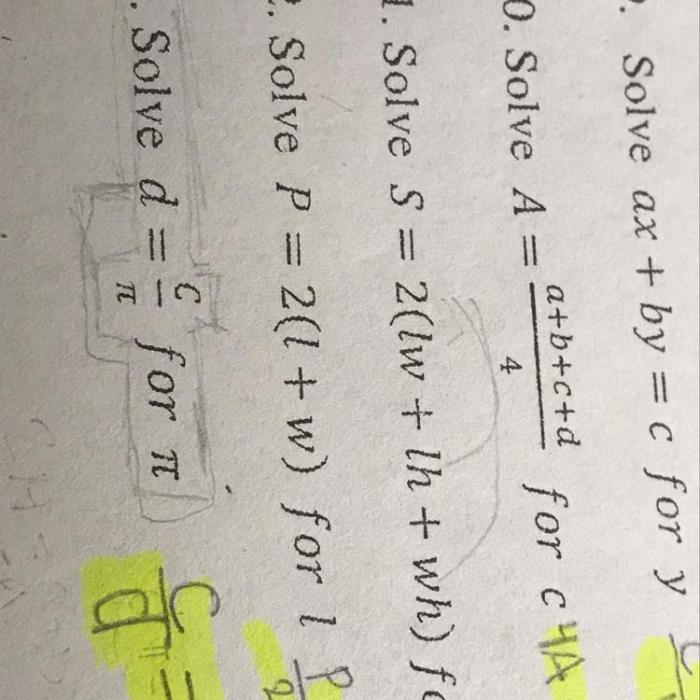 . Solve ax + by = c for y
0. Solve A = a+b+c+d/4 for c 4A
1. Solve S = 2(lw + lh + wh) fo
2. Solve P = 2(l + w) for l P/2
. Solve d = C/π for π C/d =